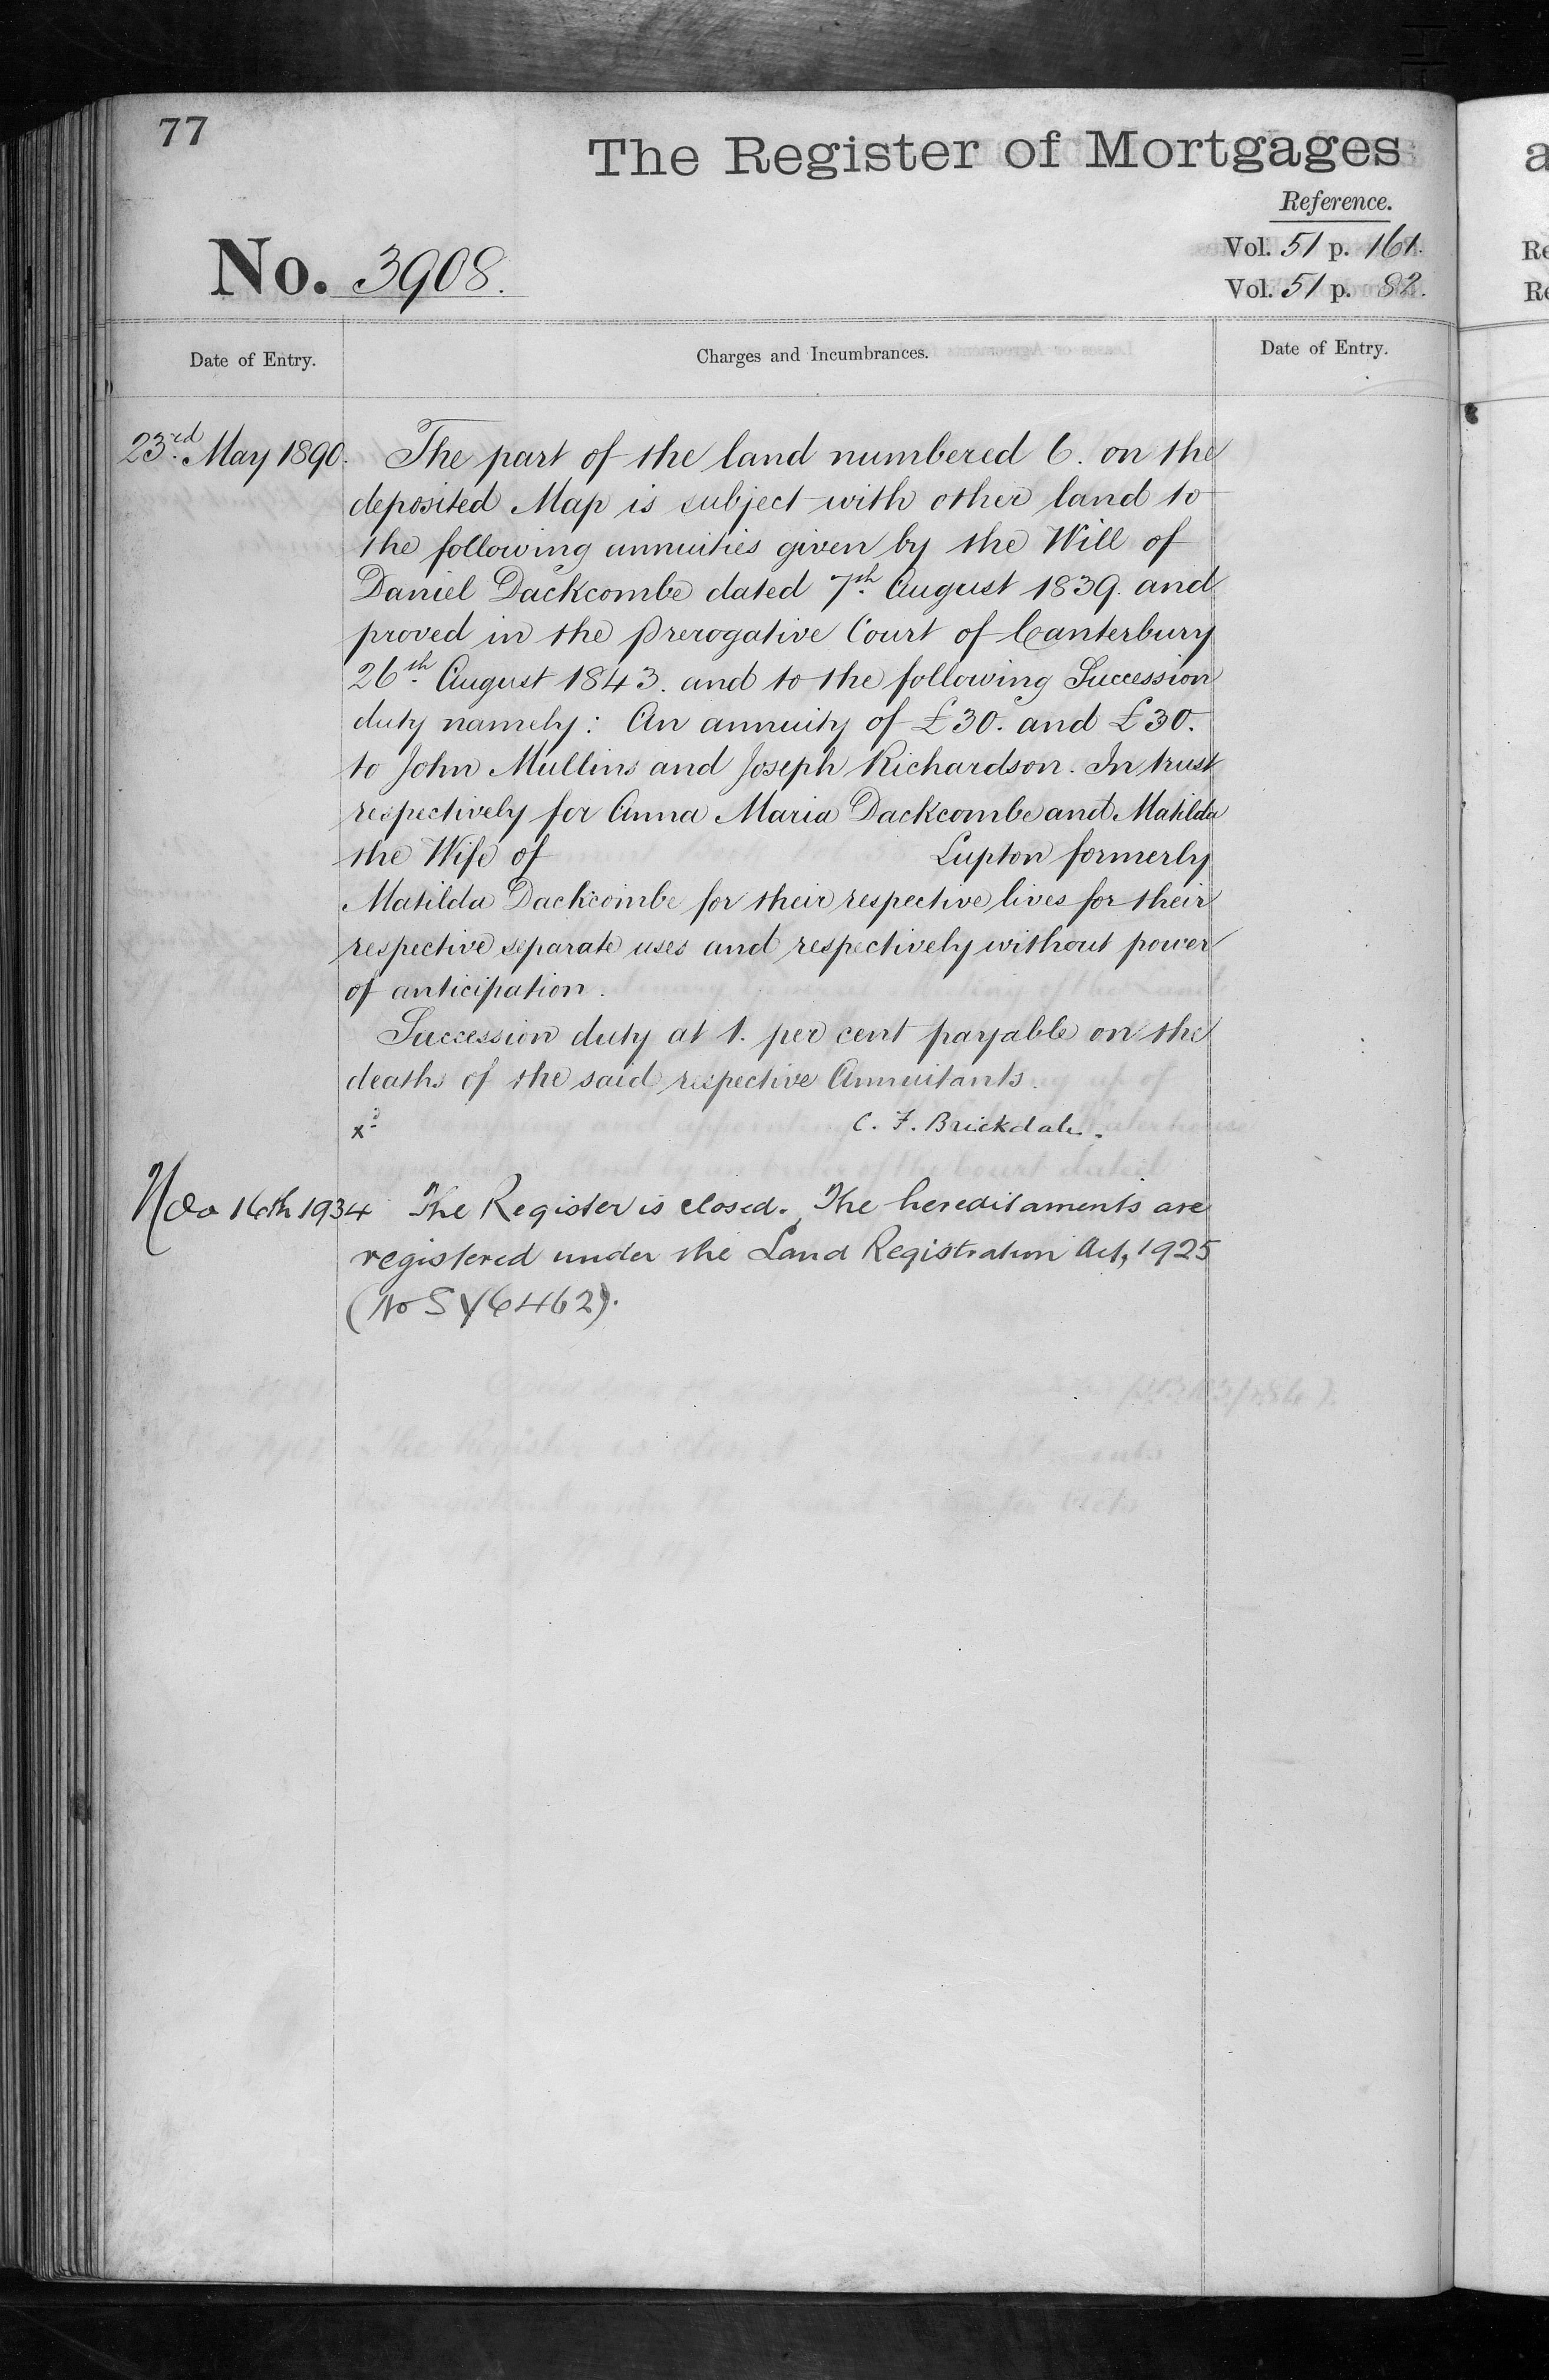 77
The Register of Mortgages
Reference.
No. 3908.
Vol. 51 p. 161.
Vol. 51 p. 82.
Date of Entry.
Charges and Incumbrances.
Date of Entry.
23rd May 1890. The part of the land numbered 6. on the
deposited Map is subject with other land to
the following annuities given by the Will of
Daniel Dackcombe dated 7th August 1839. and
proved in the Prerogative Court of Canterbury
26th August 1843. and to the following Succession
duty namely: An annuity of £30. and £30.
to John Mullins and Joseph Richardson. In trust
respectively for Anna Maria Dackcombe and Matilda
the Wife of Lupton formerly
Matilda Dackcombe for their respective lives for their
respective separate uses and respectively without power
of anticipation.
Succession duty at 1. per cent payable on the
deaths of the said respective Annuitants.
C. F. Brickdale.
16th 1934 The Register is closed. The hereditaments are
registered under the Land Registration Act, 1925
(No SY6462).